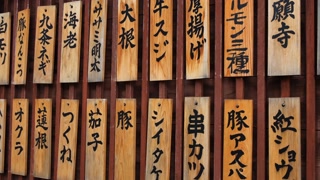 願寺
ルモン三種
厚揚げ
牛スジ
大根
みそ明太
海老
九条ネギ
豚なんこつ
白モツ
紅ショウ
豚アスパ
串カツ
シイタケ
豚
茄子
つくね
蓮根
オクラ